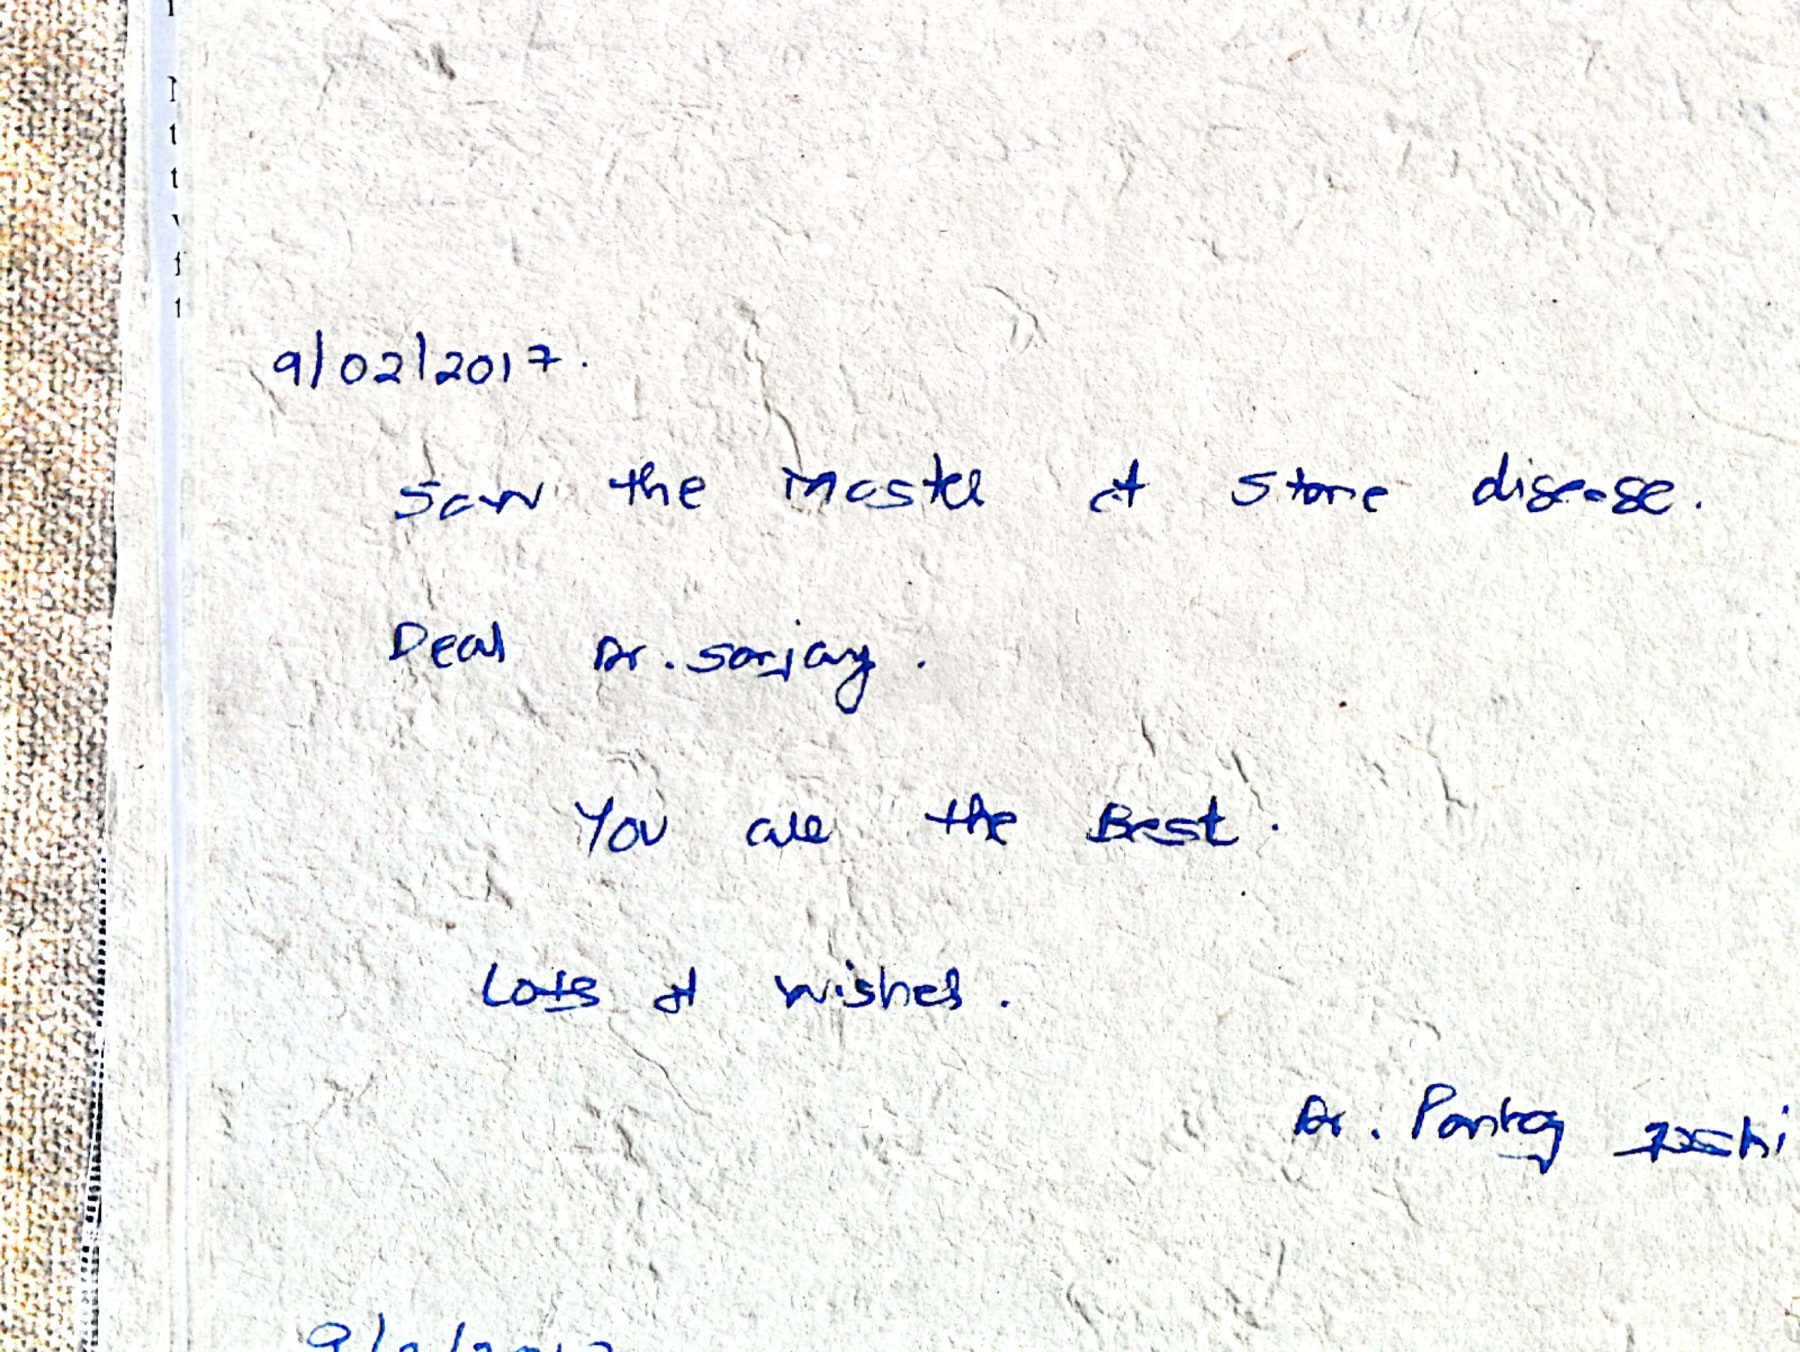 9/02/2017.
Saw the Master of Stone disease.
Dear Dr. Sanjay.
You are the Best.
Lots of wishes.
Dr. Pankaj Joshi